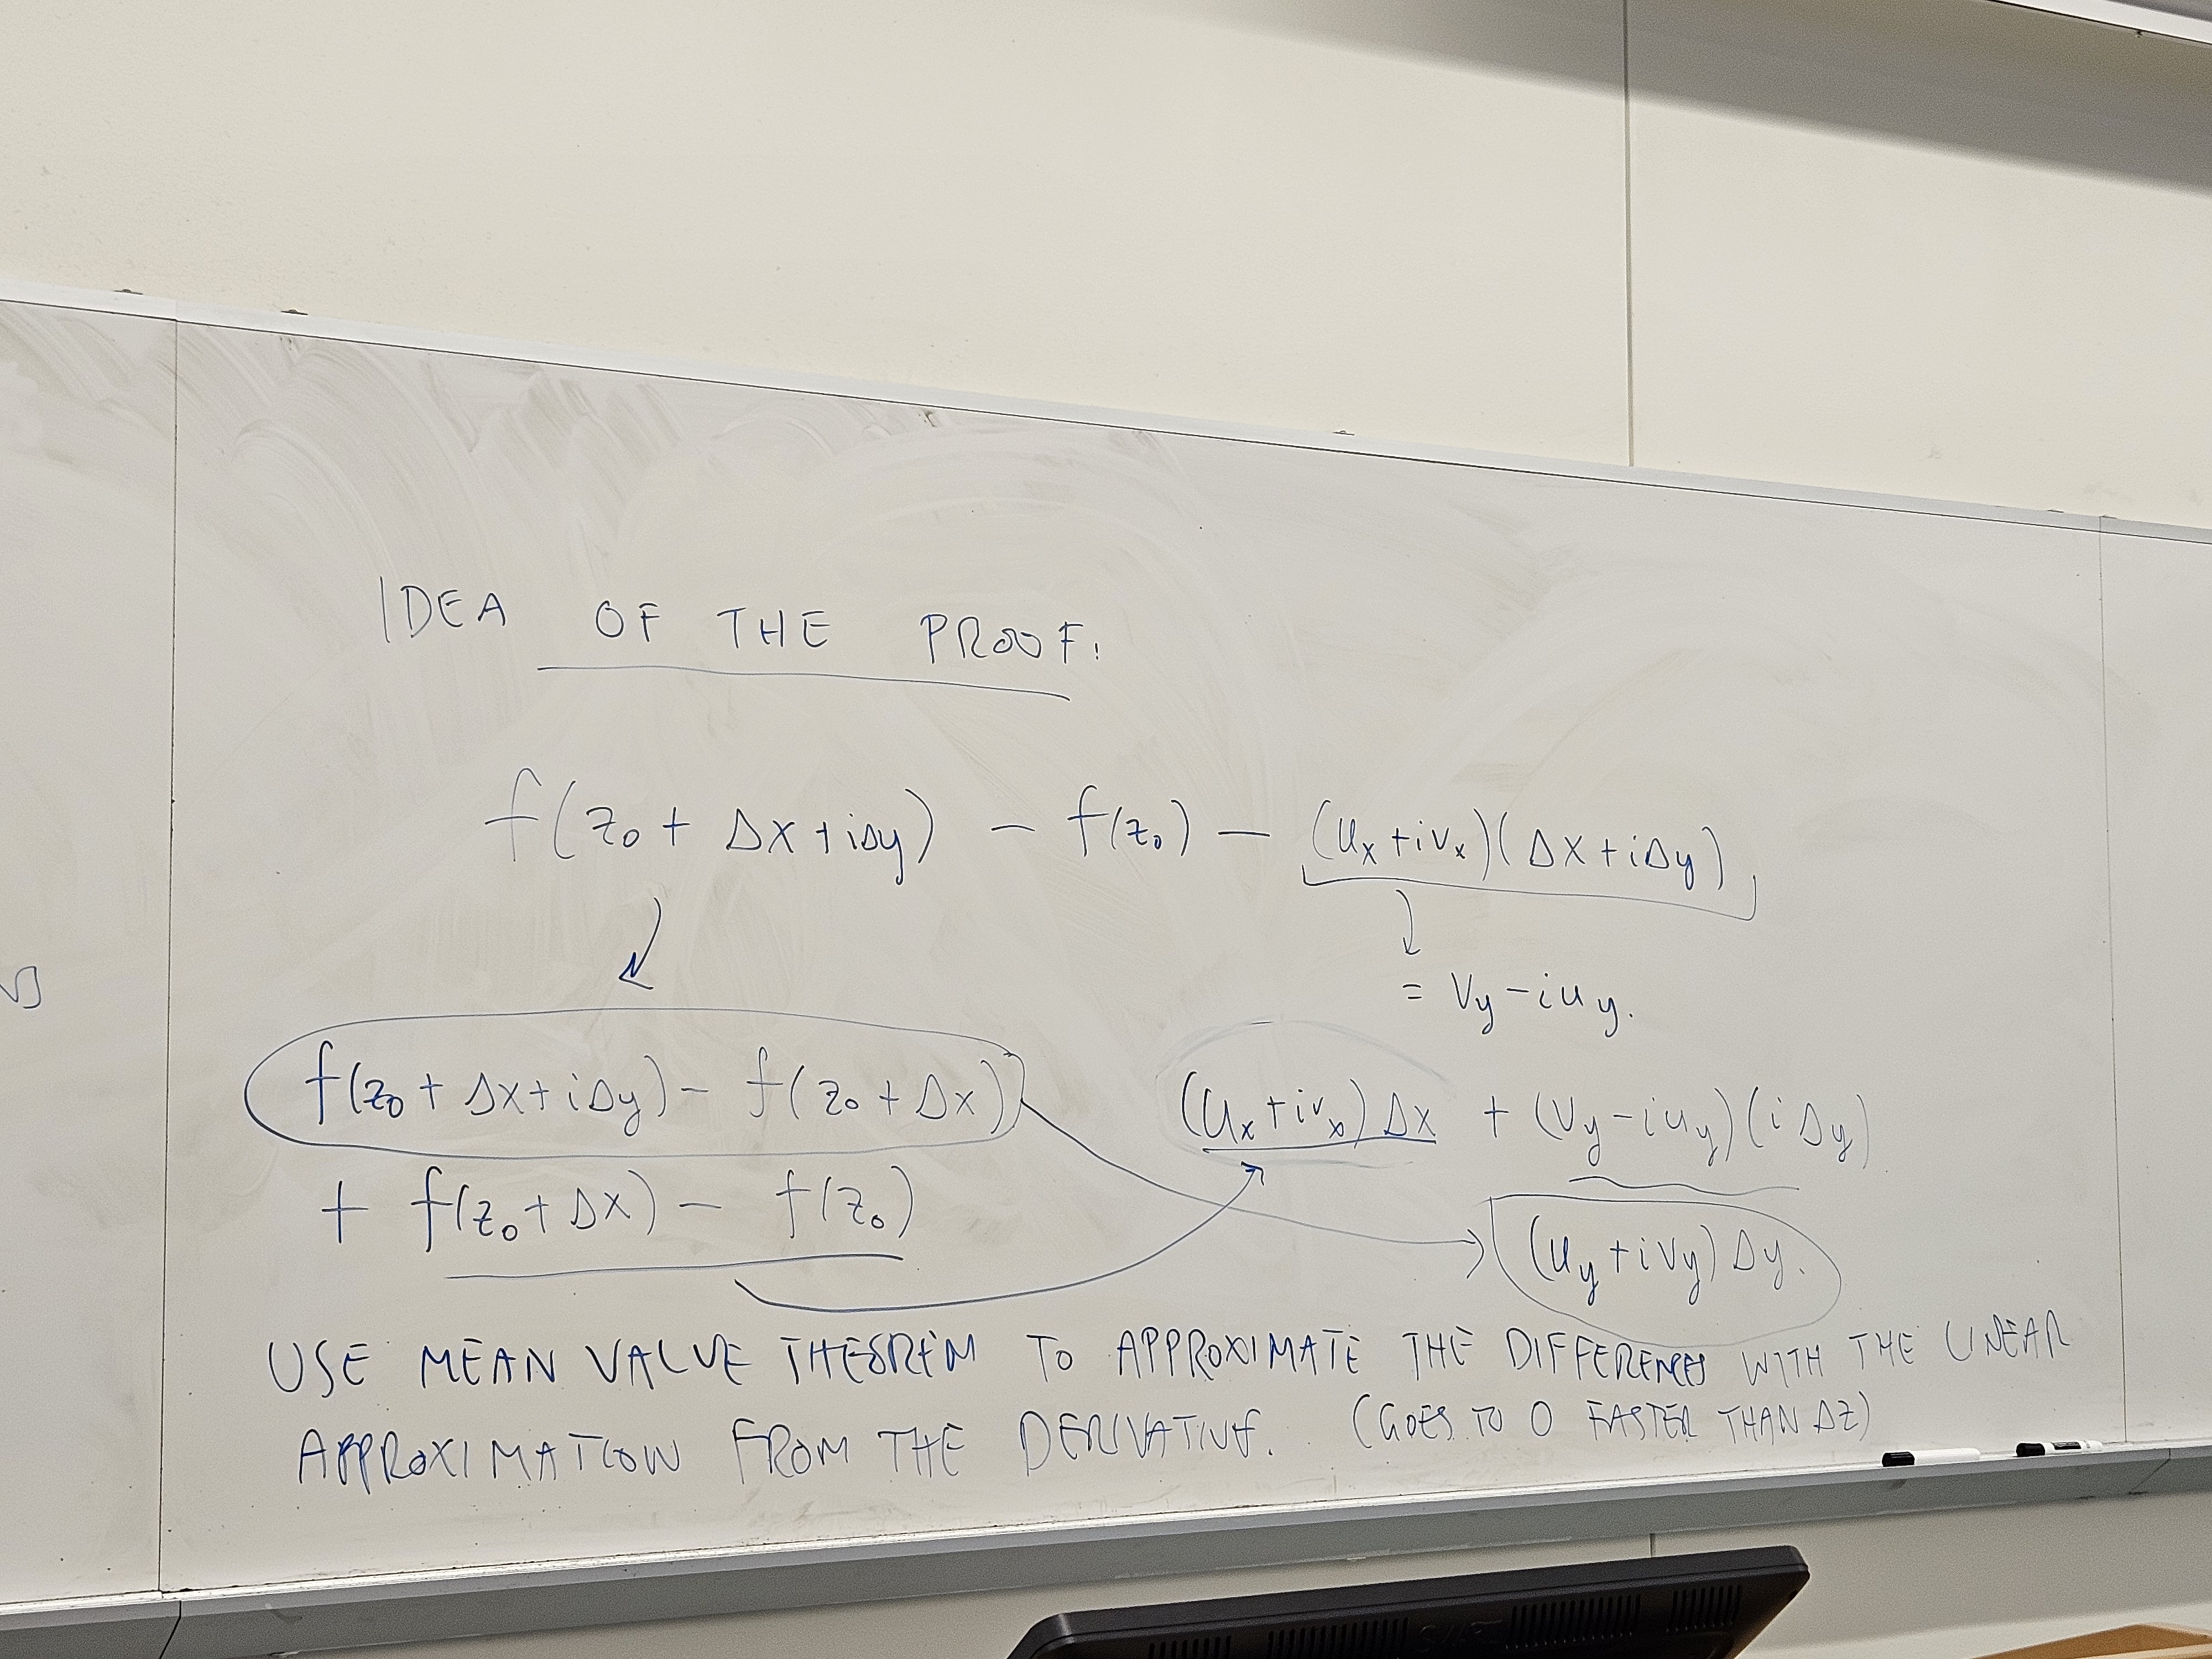 IDEA OF THE PROOF:
f(z₀ + Δx + iΔy) − f(z₀) − (uₓ + ivₓ)(Δx + iΔy)
= v_y − iu_y.
f(z₀ + Δx + iΔy) − f(z₀ + Δx)
+ f(z₀ + Δx) − f(z₀)
(uₓ + ivₓ) Δx + (v_y − iu_y)(i Δy)
(u_y + iv_y) Δy.
USE MEAN VALUE THEOREM TO APPROXIMATE THE DIFFERENCES WITH THE LINEAR
APPROXIMATION FROM THE DERIVATIVE. (GOES TO 0 FASTER THAN ΔZ)